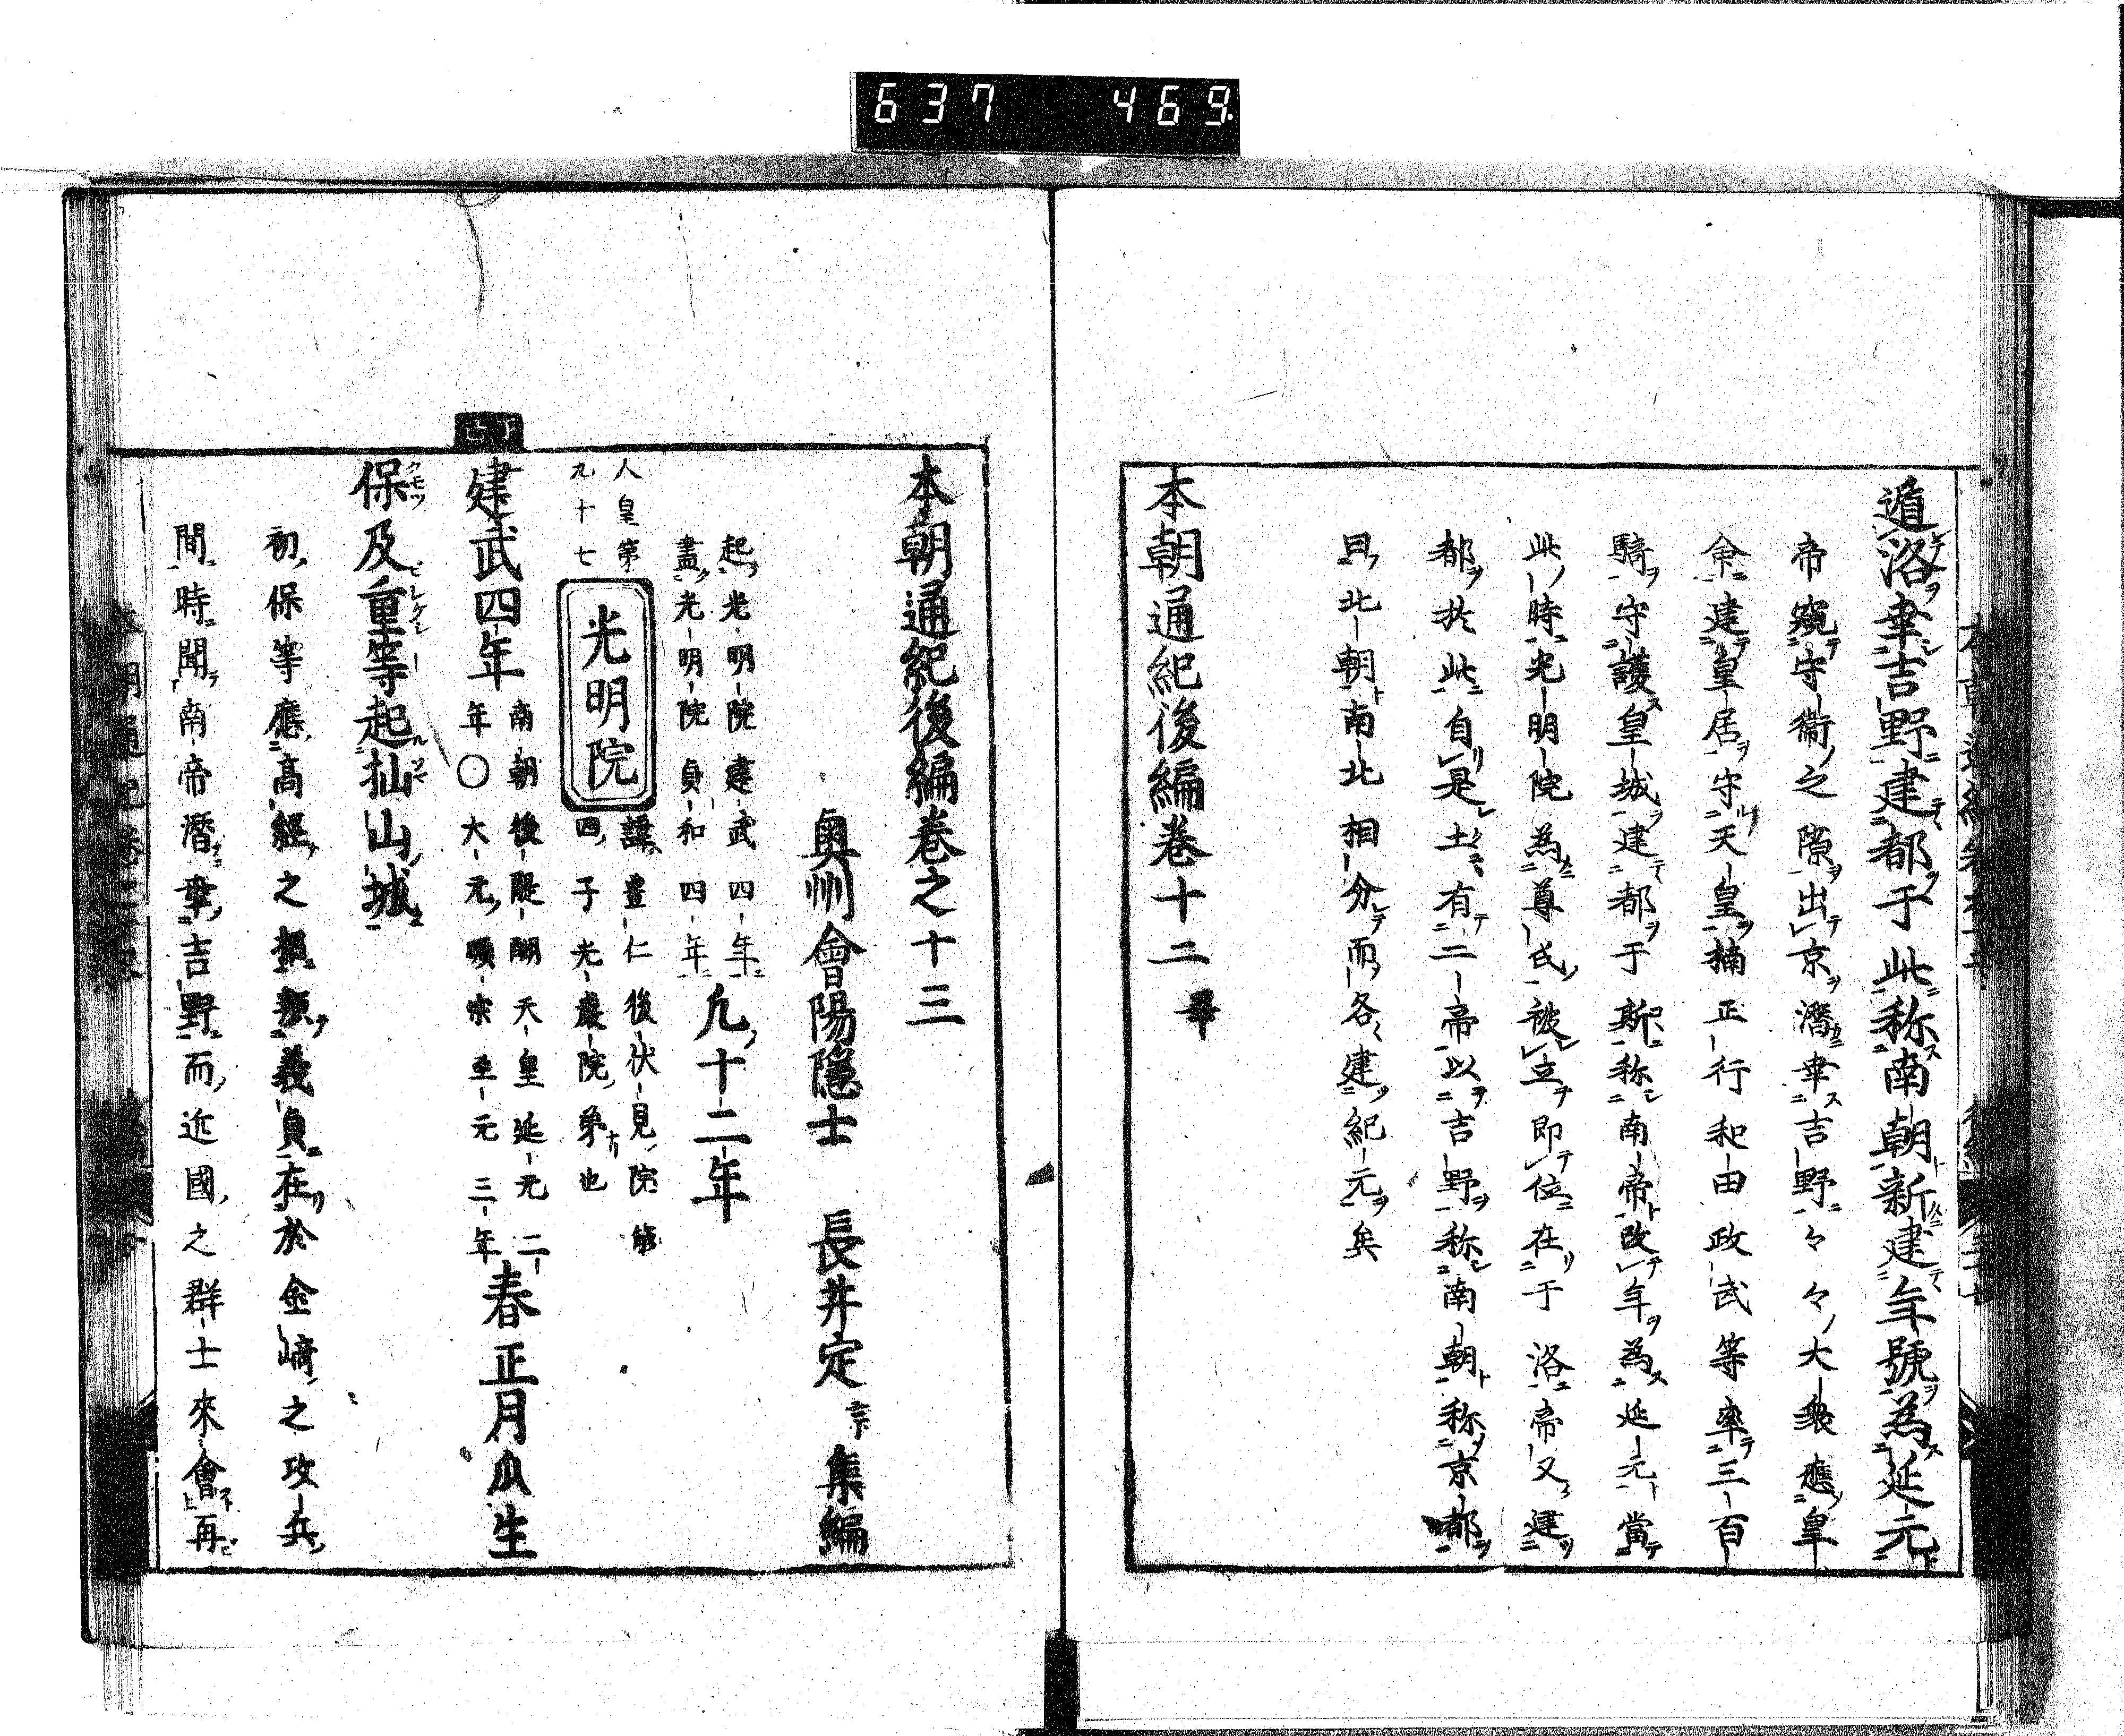 637 469
遁洛幸吉野建都于此称南朝新建年號為延元
帝窺守衞之隙出京潛幸吉野々々大衆應皇
命建皇居守天皇楠正行和田政武等率三百
騎守護皇城建都于斯称南帝改年為延元當
此時光明院為尊氏被立即位在于洛帝又建
都於此自是土有二帝以吉野称南朝称京都
曰北朝南北相分而各建紀元矣
本朝通紀後編卷十二畢
本朝通紀後編卷之十三
奥州會陽隱士 長井定宗 集編
起光明院建武四年
盡光明院貞和四年
凡十二年
人皇第
九十七
光明院
諱豊仁後伏見院第
四子光嚴院弟也
丁七
建武四年
南朝後醍醐天皇延元二
年〇大元順宗至元三年
春正月瓜生
保及重等起杣山城
初保等應高經之招頻義貞在於金﨑之攻兵
間時聞南帝潛幸吉野而近國之群士來會再